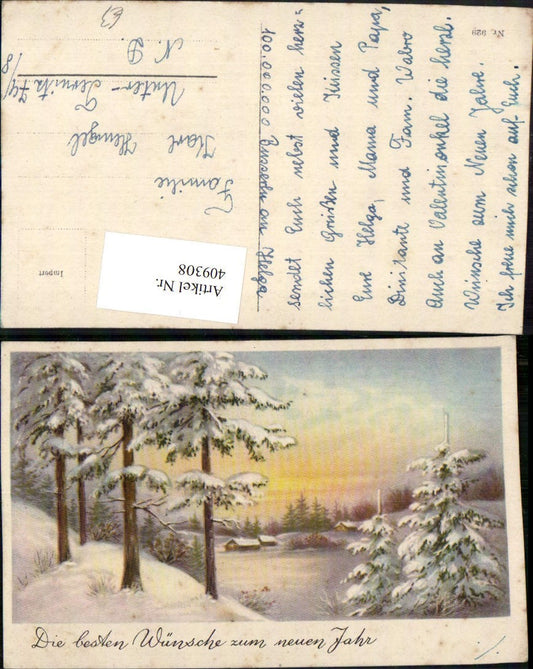 Nr. 929
sendet Euch nebst vielen herz=
lichen Grüßen und Küssen
Eure Helga, Mama und Papa,
und Fam. Wabro
Auch an Valentinonkel die herzl.
Wünsche zum Neuen Jahre.
Ich freue mich schon auf Euch.
100.000.000 Busserln an Helga
Familie
Karl Hengel
Unter-Ternitz 74/8
N. D
Import
Artikel Nr.
409308
Die besten Wünsche zum neuen Jahr